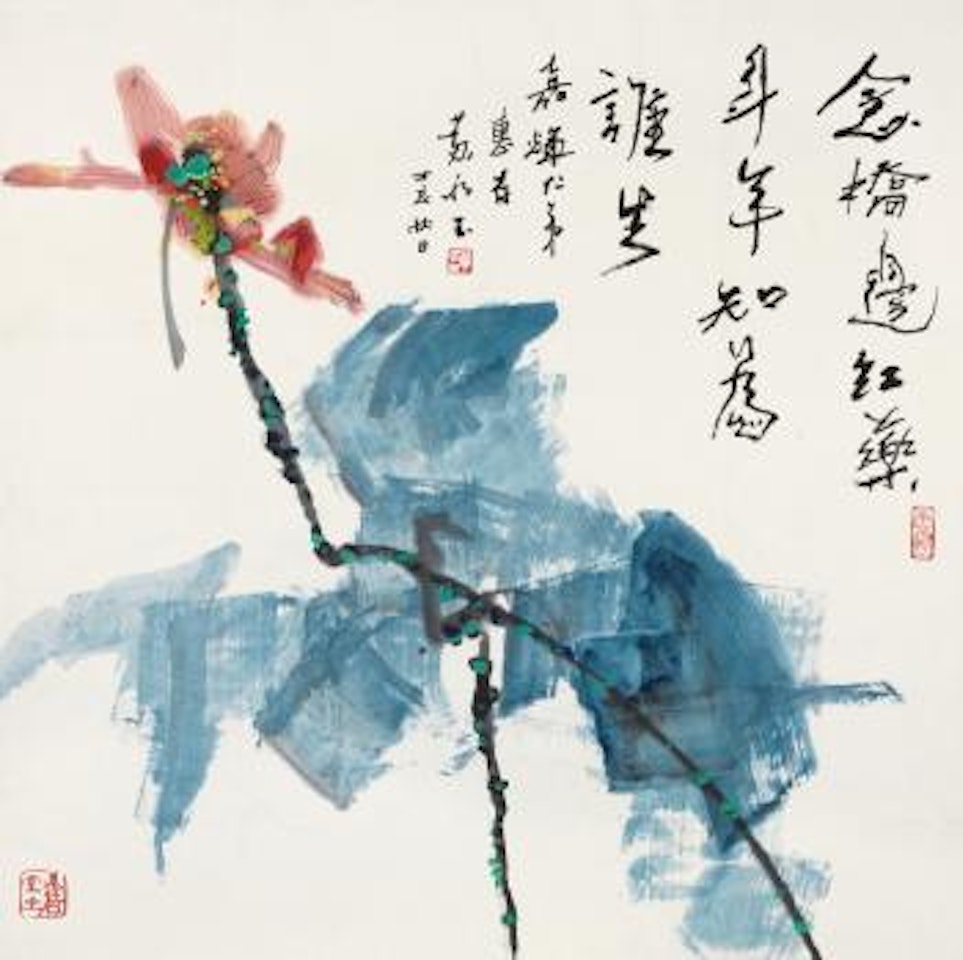 念橋邊紅藥
年年知為
誰生
嘉輝仁弟
惠存
黃永玉